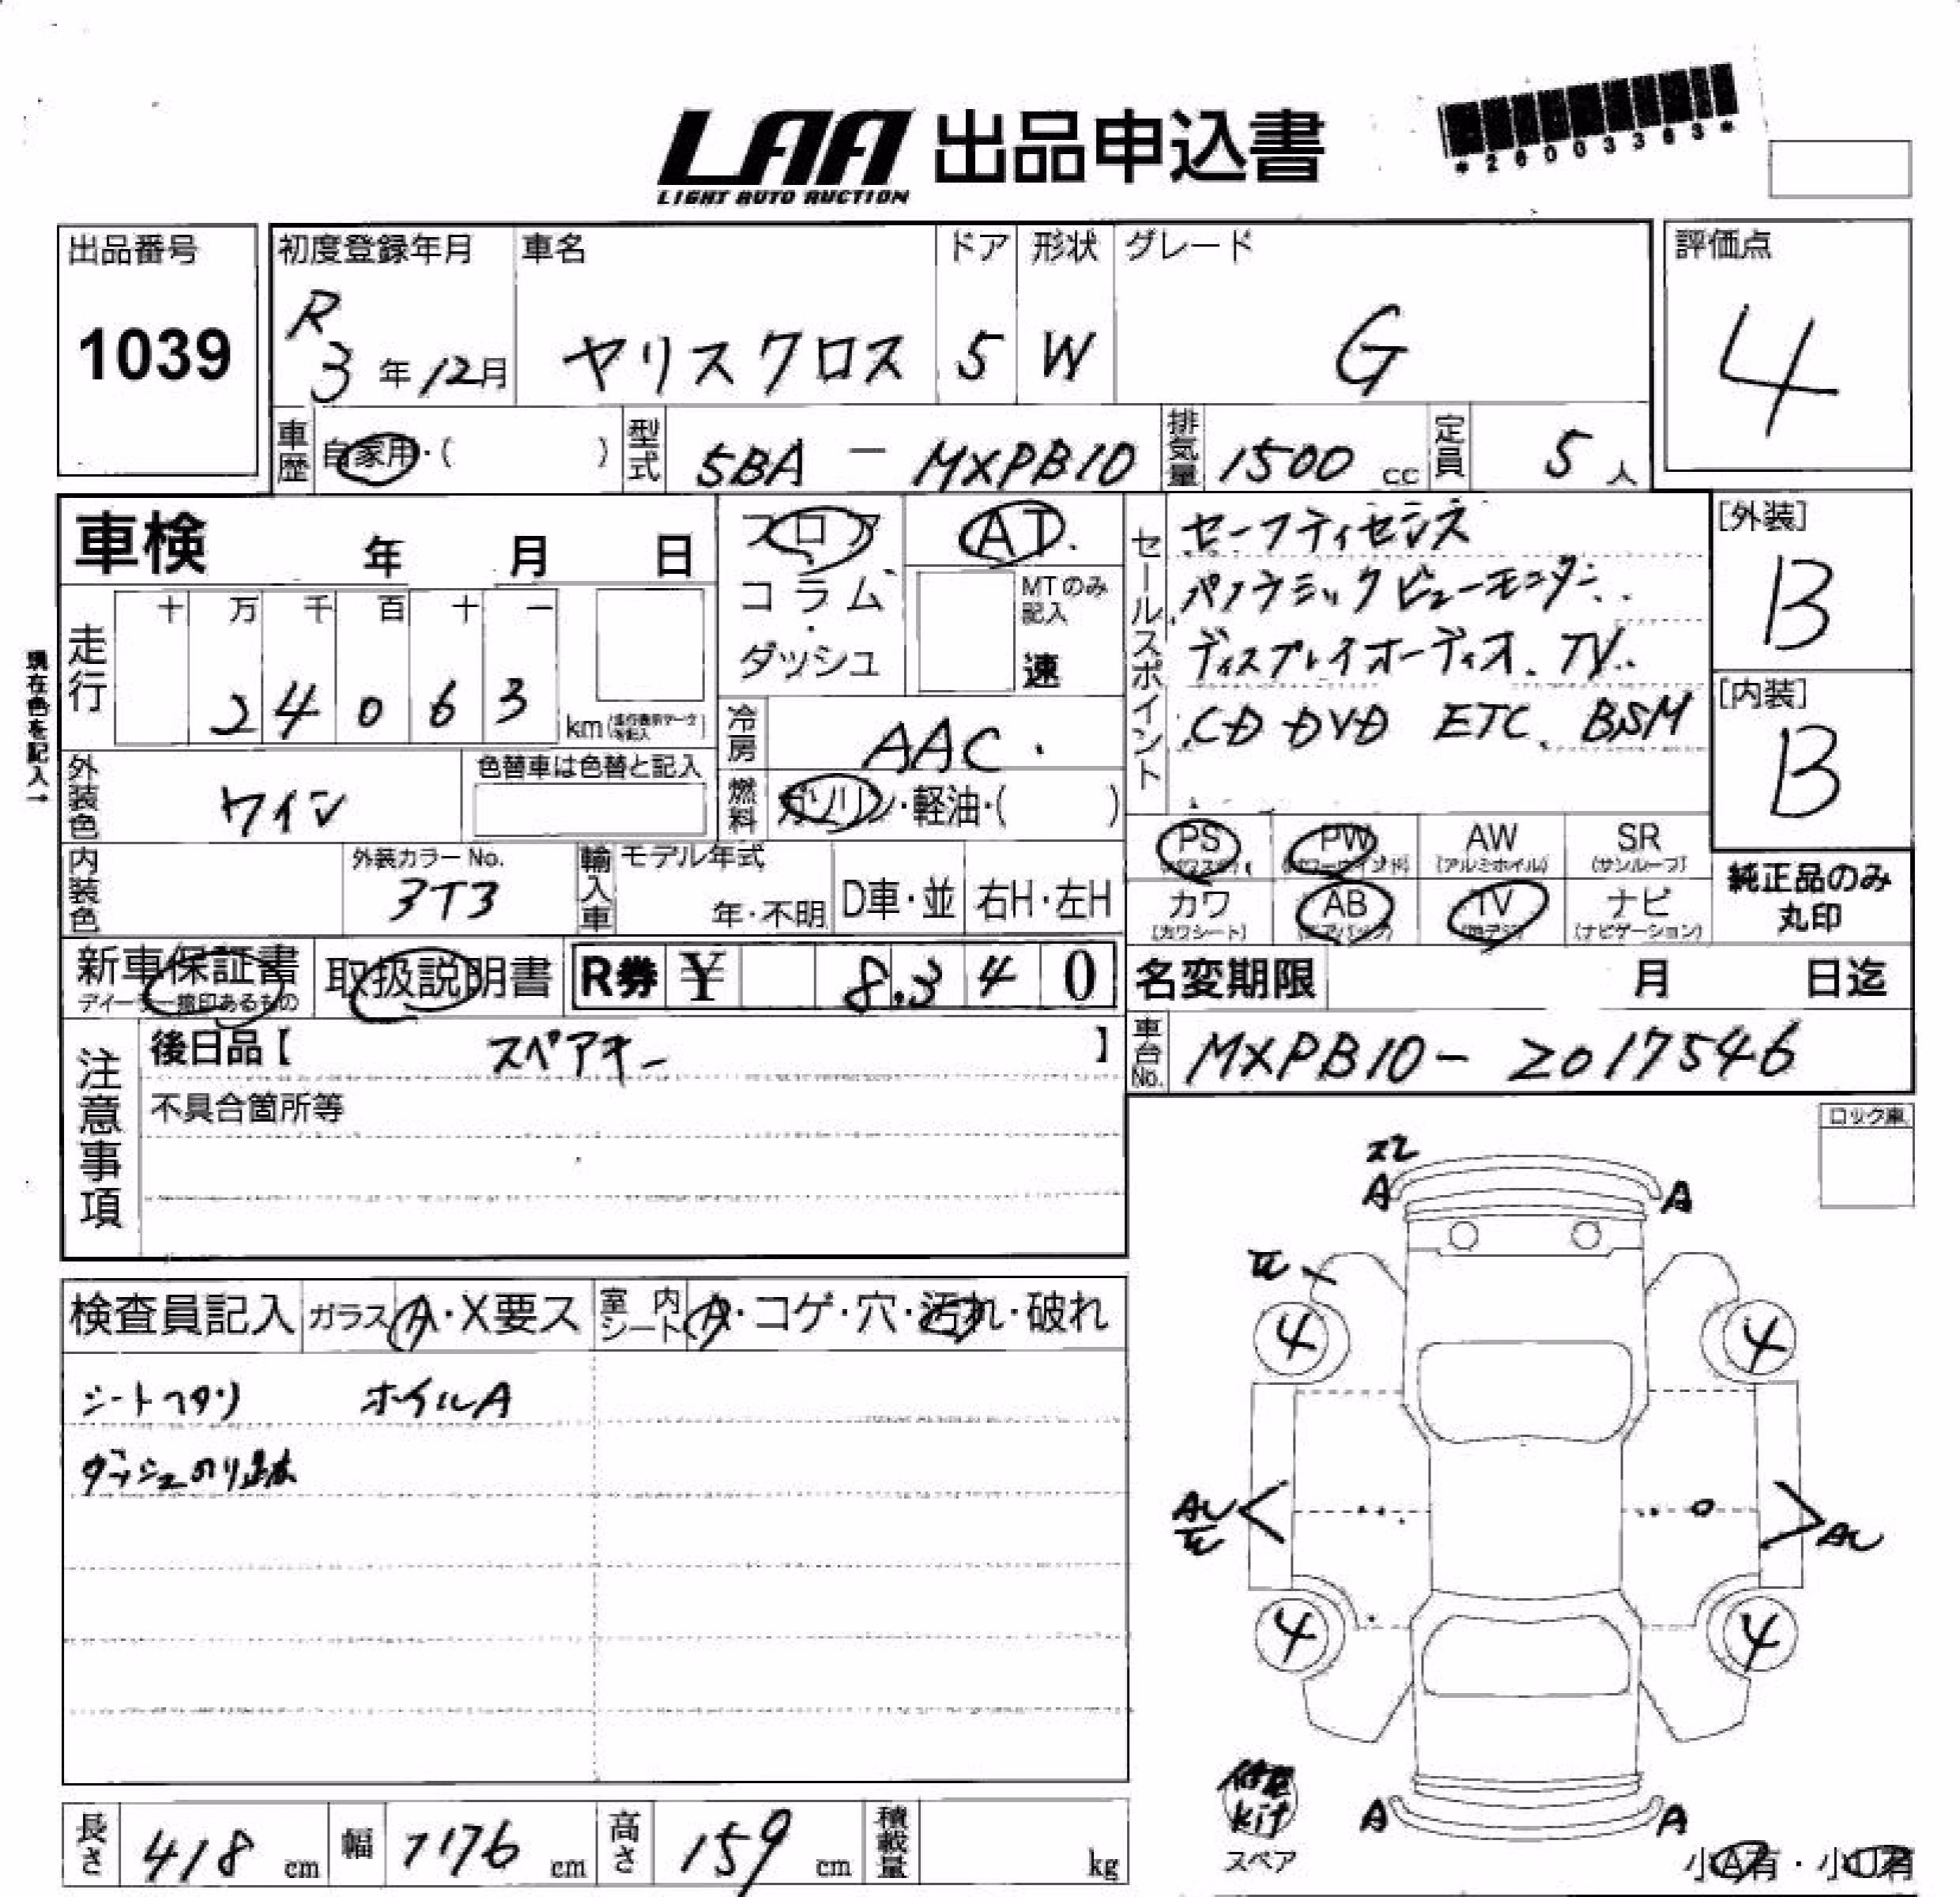 LAA 出品申込書
LIGHT AUTO AUCTION
*26003363*
出品番号
1039
初度登録年月
R
3年12月
車名
ヤリスクロス
ドア
5
形状
W
グレード
G
評価点
4
車歴 自家用・( )
型式 5BA - MXPB10
排気量 1500 cc
定員 5 人
車検 年 月 日
現在色を記入→
走行 十 万 千 百 十 一
2 4 0 6 3 km
フロア
コラム
ダッシュ
AT
MTのみ記入
速
冷房 AAC
燃料 ガソリン・軽油・( )
外装色 ワイン
色替車は色替と記入
内装色
外装カラーNo.
3T3
輸入車 モデル年式
年・不明
D車・並
右H・左H
セールスポイント
セーフティセンス
パノラミックビューモニター
ディスプレイオーディオ. TV.
CD DVD ETC BSM
[外装]
B
[内装]
B
PS
PW (パワーウインド)
AW (アルミホイル)
SR (サンルーフ)
カワ (カワシート)
AB (エアバッグ)
TV (地デジ)
ナビ (ナビゲーション)
純正品のみ
丸印
新車保証書
ディーラー捺印あるもの
取扱説明書
R券 ¥ 8,340
名変期限 月 日迄
車台No. MXPB10-2017546
注意事項
後日品【 スペアキー 】
不具合箇所等
ロック車
検査員記入
ガラス A・X要ス
室内シート A・コゲ・穴・汚れ・破れ
シートヘタリ ホイルA
ダッシュのり跡
スレ
A A
4 4
AU
AU
4 4
修理
kit
スペア
A A
小A有・小U有
長さ 418 cm
幅 176 cm
高さ 159 cm
積載量 kg